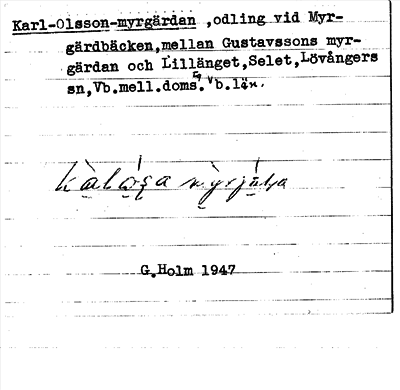 Karl-Olsson-myrgärdan ,odling vid Myr-
gärdbäcken,mellan Gustavssons myr-
gärdan och Lillänget,Selet,Lövångers
sn,Vb.mell.doms.Vb.län.
G.Holm 1947